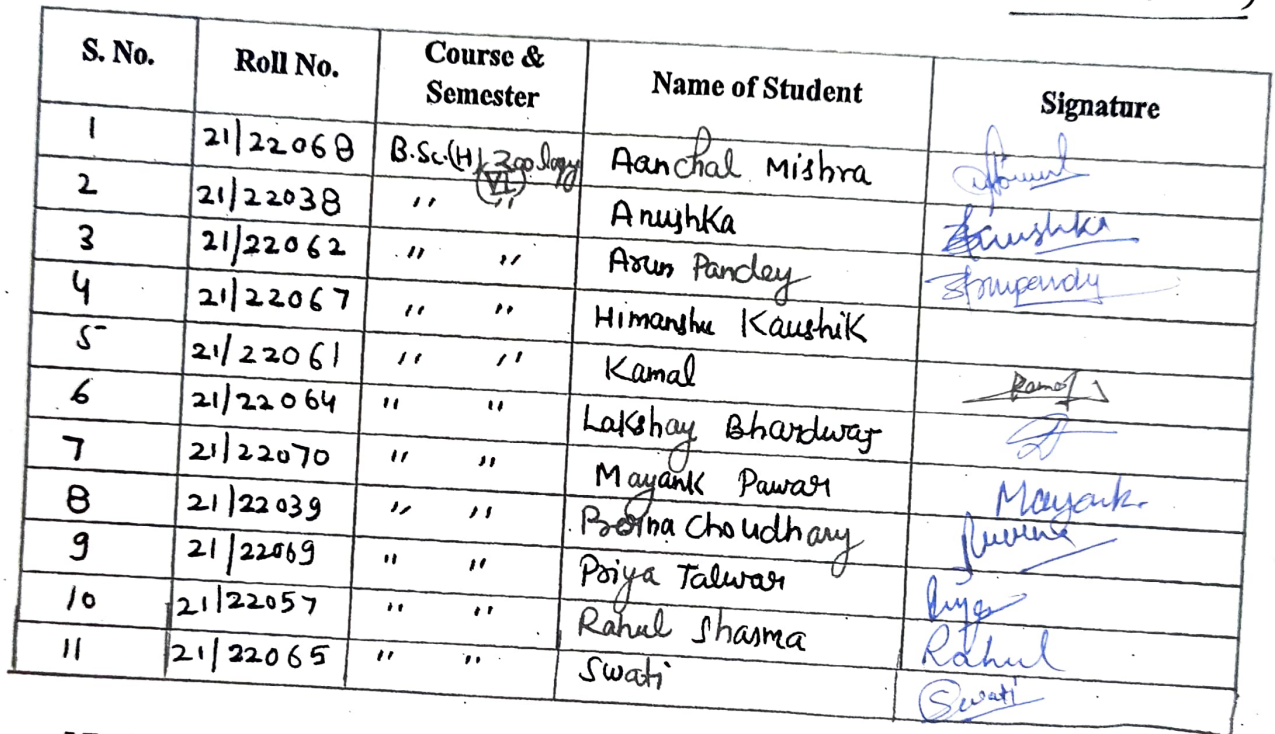 S. No. Roll No. Course & Semester Name of Student Signature
1 21/22068 B.Sc.(H) Zoology (VI) Aanchal Mishra
2 21/22038 " " Anushka Anushka
3 21/22062 " " Arun Pandey Arunpandy
4 21/22067 " " Himanshu Kaushik
5 21/22061 " " Kamal Kamal
6 21/22064 " " Lakshay Bhardwaj
7 21/22070 " " Mayank Pawar Mayank.
8 21/22039 " " Perna Choudhary
9 21/22069 " " Priya Talwar Priya
10 21/22057 " " Rahul Sharma Rahul
11 21/22065 " " Swati Swati